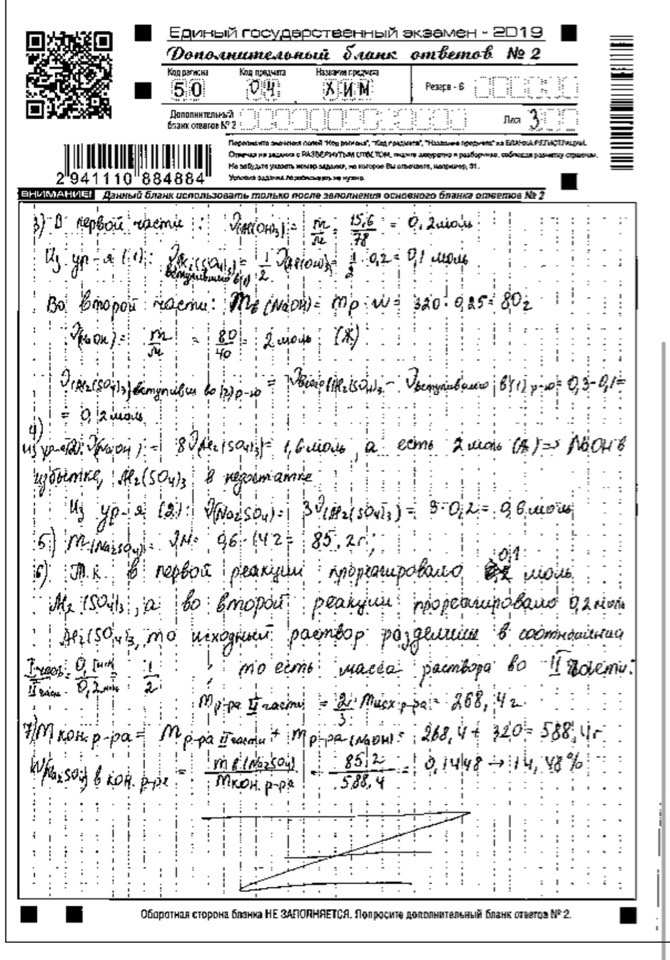 Единый государственный экзамен - 2019
Дополнительный бланк ответов № 2
Код региона Код предмета Название предмета Резерв - 6
50 04 ХИМ
Дополнительный бланк ответов № 2 Лист 3
Перепишите значения полей "Код региона", "Код предмета", "Название предмета" из БЛАНКА РЕГИСТРАЦИИ.
Отвечая на задания с РАЗВЕРНУТЫМ ОТВЕТОМ, пишите аккуратно и разборчиво, соблюдая разметку страницы.
Не забудьте указать номер задания, на которое Вы отвечаете, например, 31.
Условия задания переписывать не нужно.
2 941110 884884
ВНИМАНИЕ! Данный бланк использовать только после заполнения основного бланка ответов № 2
3) В первой части: ν(Al(OH)3) = m/M = 15,6/78 = 0,2 моль
Из ур-я (1): ν(Al2(SO4)3) вступившего в (1) = 1/2 ν(Al(OH)3) = 1/2 · 0,2 = 0,1 моль
Во второй части: mв(NaOH) = mр · w = 320 · 0,25 = 80 г
ν(NaOH) = m/M = 80/40 = 2 моль (Ж)
ν(Al2(SO4)3) вступивш. во (2) р-ю = νвсего(Al2(SO4)3 - νвступившего в (1) р-ю = 0,3 - 0,1 =
= 0,2 моль
4)
Из ур-я (2): ν(NaOH) = 8ν(Al2(SO4)3) = 1,6 моль, а есть 2 моль (Ж) => NaOH в
избытке, Al2(SO4)3 в недостатке
Из ур-я (2): ν(Na2SO4) = 3ν(Al2(SO4)3) = 3 · 0,2 = 0,6 моль
5) m(Na2SO4) = νM = 0,6 · 142 = 85,2 г;
6) Т.к. в первой реакции прореагировало 0,1 моль
Al2(SO4)3, а во второй реакции прореагировало 0,2 моль
Al2(SO4)3, то исходный раствор разделили в соотношении
I часть/II части = 0,1 моль/0,2 моль = 1/2, то есть масса раствора во II части:
mр-ра II части = 2/3 mисх р-ра = 268,4 г
7) Mкон. р-ра = mр-ра II части + mр-ра (NaOH) = 268,4 + 320 = 588,4 г
W(Na2SO4) в кон. р-ре = mв(Na2SO4)/mкон. р-ра = 85,2/588,4 = 0,1448 → 14,48%
Оборотная сторона бланка НЕ ЗАПОЛНЯЕТСЯ. Попросите дополнительный бланк ответов № 2.